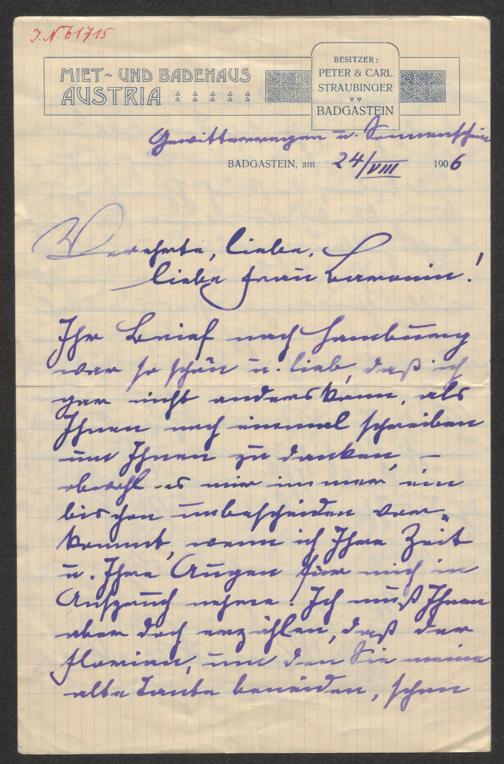 I.N. 61715
MIET- UND BADEHAUS
AUSTRIA
BESITZER:
PETER & CARL
STRAUBINGER
BADGASTEIN
Gewitterregen u. Sonnenschein
BADGASTEIN, am 24/VIII 1906
Verehrte, liebe,
liebe Frau Baronin!
Ihr Brief nach Hamburg
war so schön u. lieb, daß ich
gar nicht anders kann, als
Ihnen noch einmal schreiben
um Ihnen zu danken –
obwohl es mir immer ein
bischen unbescheiden vor-
kommt, wenn ich Ihre Zeit
u. Ihre Augen für mich in
Anspruch nehme. Ich muß Ihnen
aber doch erzählen, daß der
Florian, um den Sie meine
alte Tante beneiden, schon